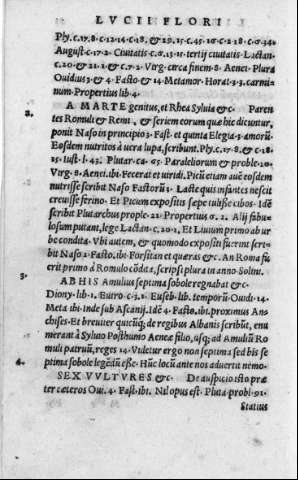 LVCII FLORI
Phy.c.17.8.c.12.14.c.18. & 29.15.c.45.10.c.2.18.c.34.
August.c.17.2. Ciuitatis c.15.11. tertij ciuitatis. Lactan.
c.20. & 21.1. & c.7.2. Virg. circa finem.8. Aenei. Plura
Ouidius 3. & 4. Fasto. & 14. Metamor. Horat.3.3. carmi
num. Propertius lib.4.
2. A MARTE genitus, et Rhea Syluia &c. Paren
tes Romuli & Remi, & seriem eorum quæ hic dicuntur,
ponit Naso in principio 3. Fast. et quinta Elegia 3. amorũ.
Eosdem nutritos à uera lupa, scribunt. Phy.c.15.8. & c.18.
15. Iust. l.43. Plutar. c.4. 65. Paraleliorum & proble.20.
Virg.8. Aenei. ibi. Fecerat et uiridi. Picũ etiam auẽ eosdem
nutrisse scribit Naso Fastorũ 3. Lacte quis infantes nescit
creuisse ferino. Et Picum expositis sæpe tulisse cibos. Idẽ
scribit Plutarchus prople.21. Propertius 2. Alij fabu
losum putant, lege Lactan. c.20.1. Et Liuium primo ab ur
be condita. Vbi autem, & quomodo expositi fuerint scri
bit Naso 2. Fasto. ibi. Forsitan et quæras &c. An Roma fu
erit primo à Romulo cõdita, scripsi plura in anno Solini.
3. AB HIS Amulius septima sobole regnabat &c.
Diony. lib.1. Eutro c.3.1. Euseb. lib. temporũ. Ouidi.14.
Meta ibi. Inde sub Ascanij. Idẽ 4. Fasto. ibi. proximus An
chises. Et breuiter quicũq; de regibus Albanis scribũt, enu
merant à Syluio Posthumo Aeneæ filio, usq; ad Amuliũ Ro
muli patruũ, reges 14. Videtur ergo non septima sed bis se
ptima sobole legẽdũ esse. Hũc locũ ante nos aduertit nemo.
4. SEX VVLTVRES &c. De auspicio isto præ
ter cæteros Oui.4. Fast. ibi. Nil opus est. Pluta. probl.91.
Statius